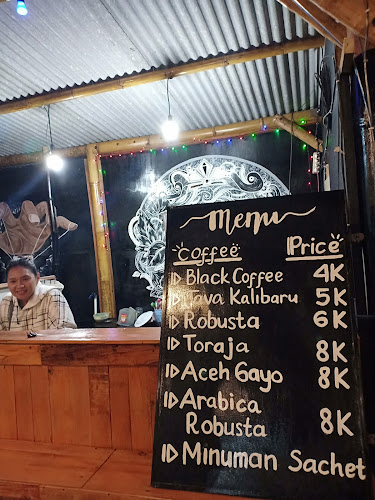 Menu
Coffee Price
Black Coffee 4K
Java Kalibaru 5K
Robusta 6K
Toraja 8K
Aceh Gayo 8K
Arabica
Robusta 8K
Minuman Sachet